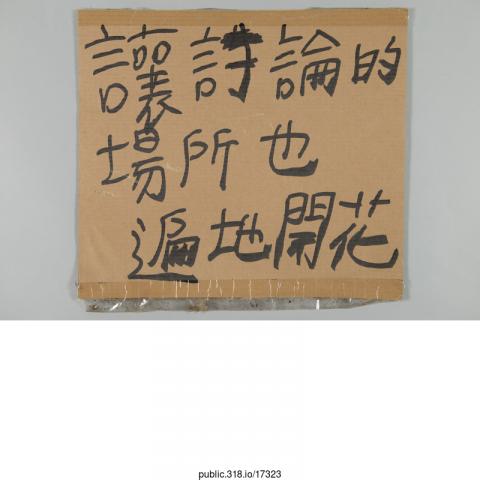 讓討論的
場所也
遍地開花
public.318.io/17323